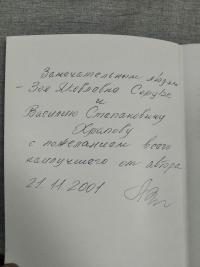 Замечательным людям
- Зое Яковлевне Сердце
и
Василию Степановичу
Храпову
с пожеланием всего
наилучшего от автора
21.11.2001